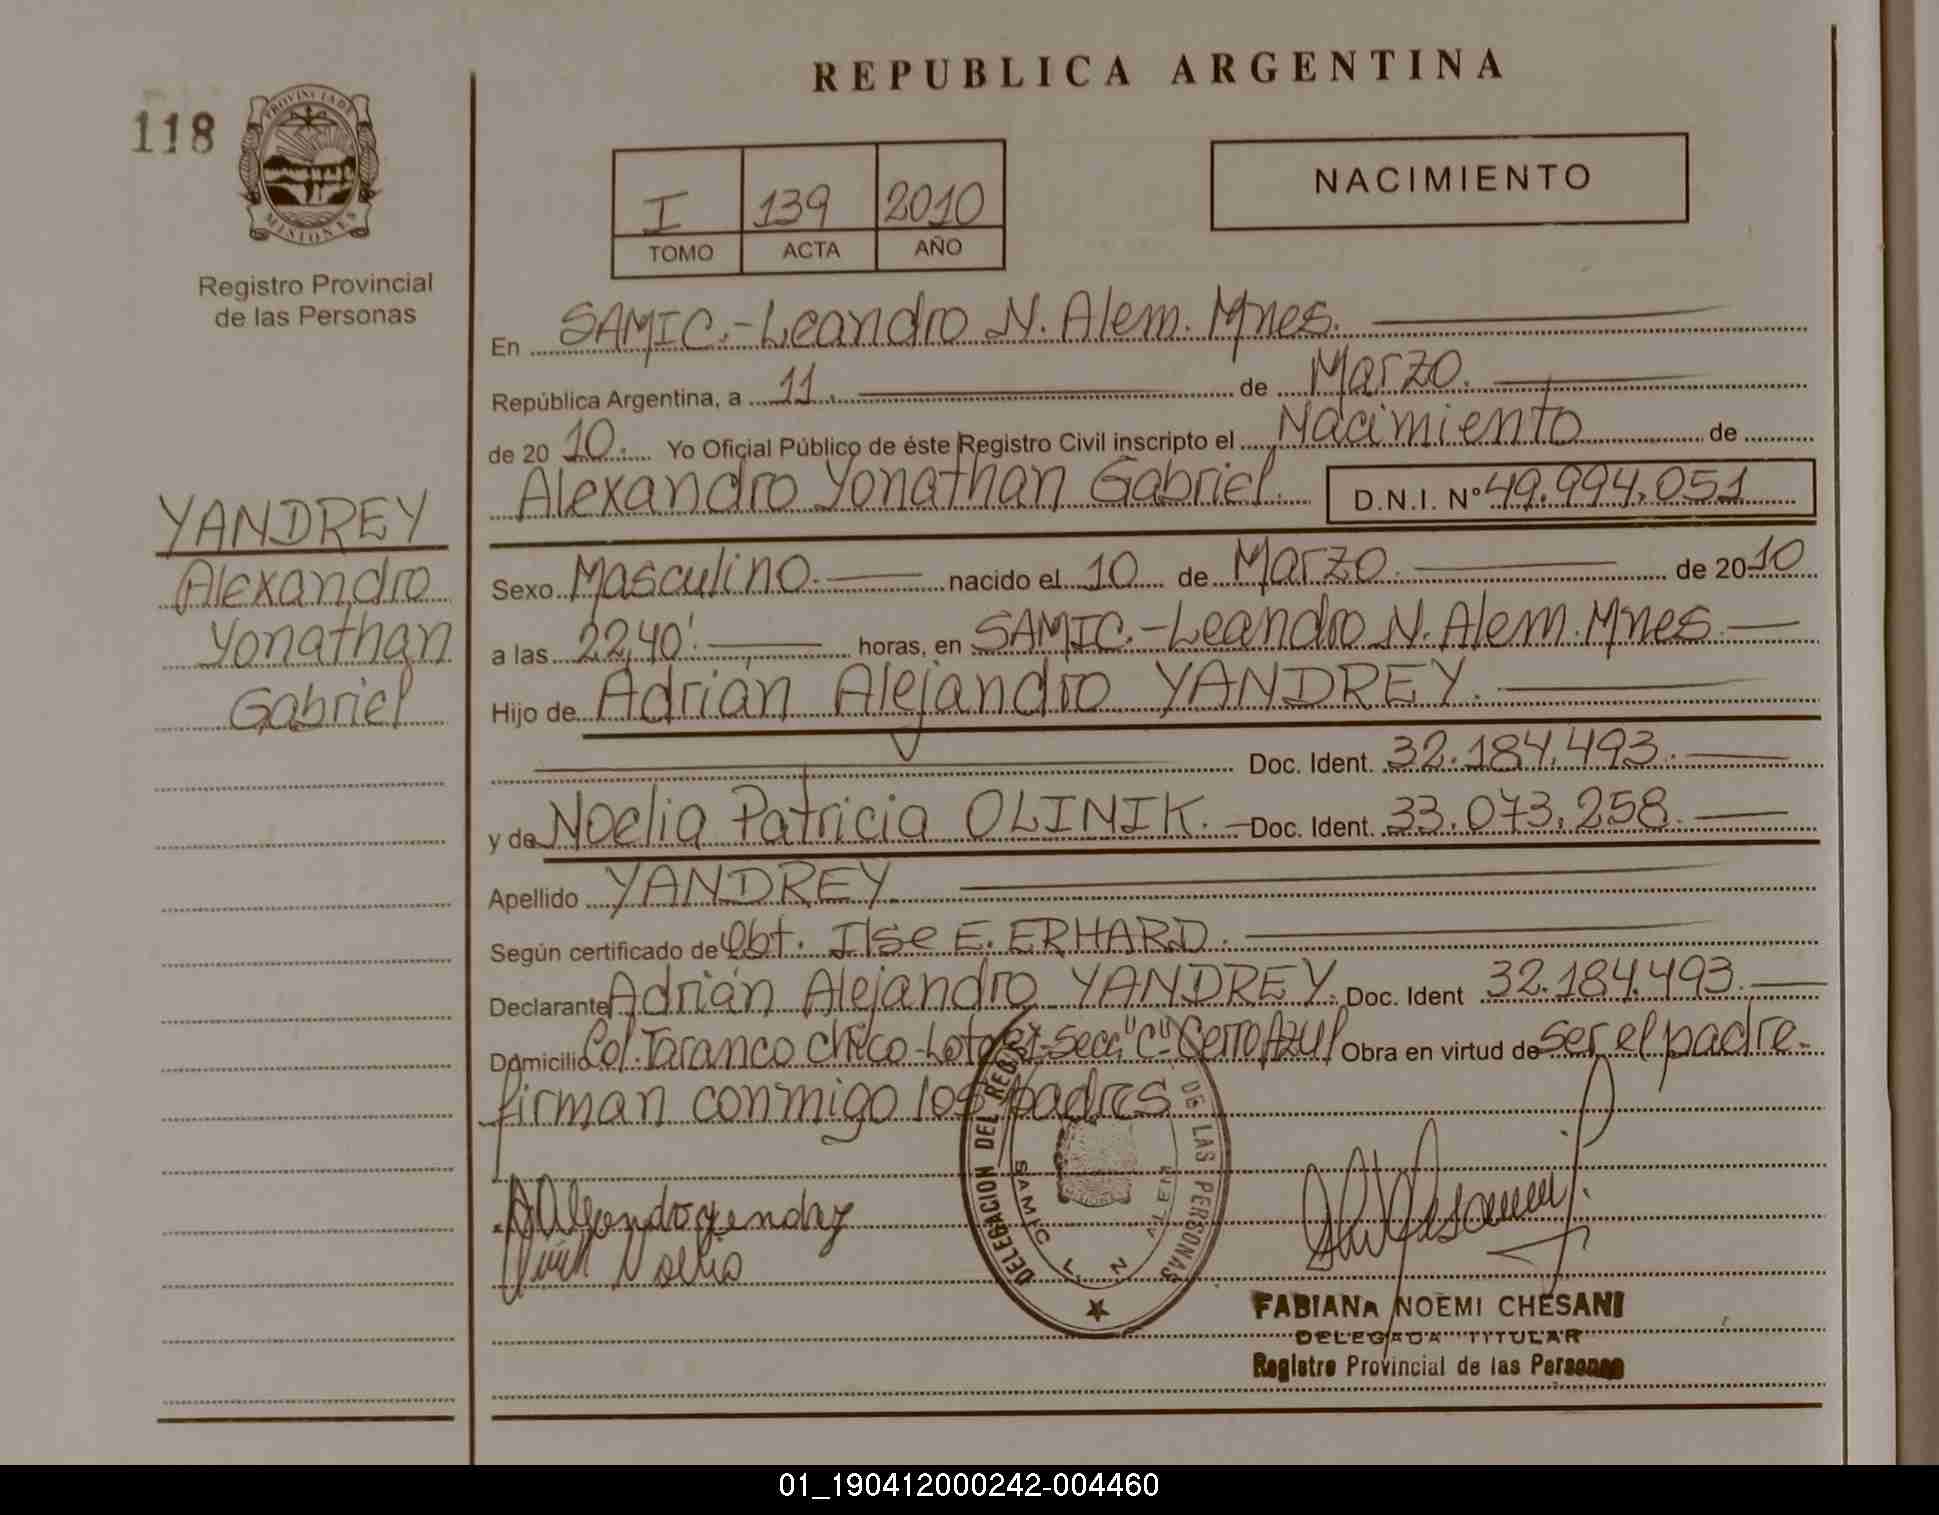 REPUBLICA ARGENTINA
118
PROVINCIA DE
MISIONES
Registro Provincial
de las Personas
I 139 2010
TOMO ACTA AÑO
NACIMIENTO
En SAMIC.-Leandro N. Alem. Mnes.
República Argentina, a 11. de Marzo.
de 20 10. Yo Oficial Público de éste Registro Civil inscripto el Nacimiento de
Alexandro Yonathan Gabriel. D.N.I. Nº 49.994.051
YANDREY
Alexandro
Yonathan
Gabriel
Sexo Masculino. nacido el 10 de Marzo. de 20 10
a las 22,40'. horas, en SAMIC.-Leandro N. Alem. Mnes.
Hijo de Adrián Alejandro YANDREY.
Doc. Ident. 32.184.493.
y de Noelia Patricia OLINIK. Doc. Ident. 33.073.258.
Apellido YANDREY
Según certificado de Obt. Ilse E. ERHARD.
Declarante Adrián Alejandro YANDREY. Doc. Ident 32.184.493.
Domicilio Col. Taranco Chico - Secc "C" - Cerro Azul Obra en virtud de ser el padre.
firman conmigo los padres
DELEGACION DEL REG DE LAS PERSONAS
SAMIC L. N. ALEM
Noelia
FABIANA NOEMI CHESANI
DELEGADA TITULAR
Registro Provincial de las Personas
01_190412000242-004460